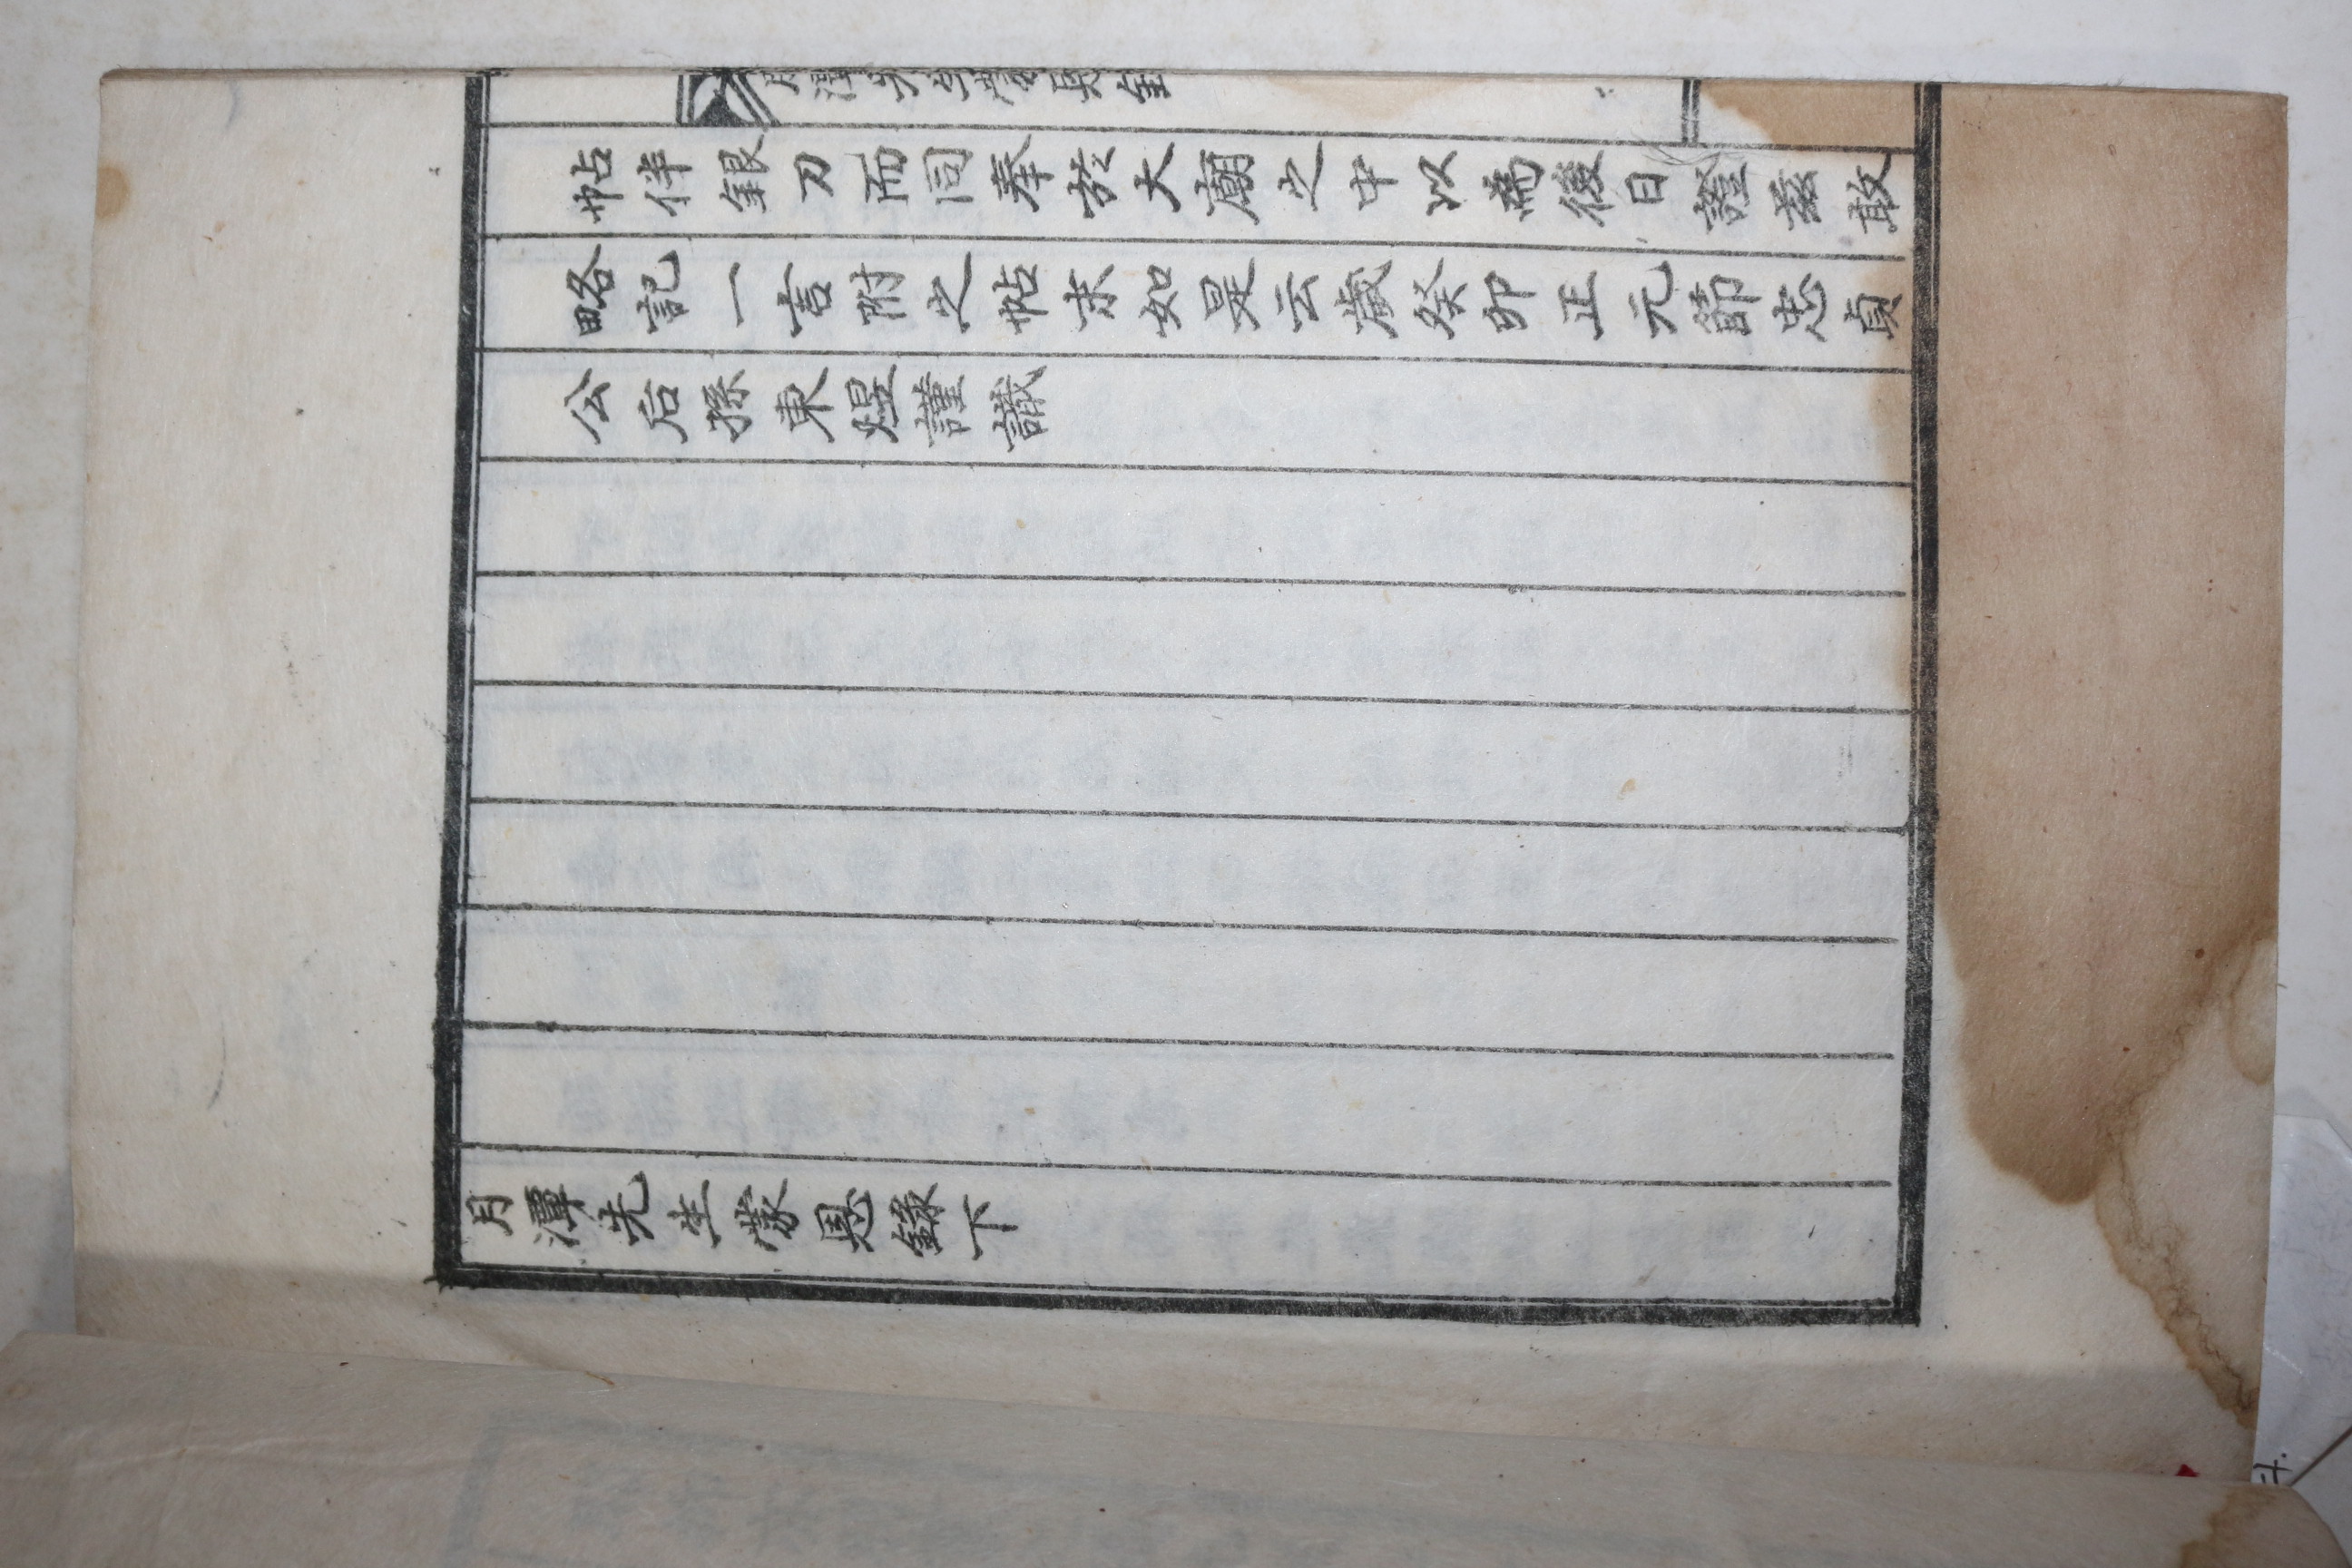 月潭先生蒙恩錄
帖伴銀刀而同奉於大廟之中以為後日證玆敢
略記一言附之帖末如是云歲癸卯正元節忠貞
公后孫東煜謹識
月潭先生蒙恩錄下